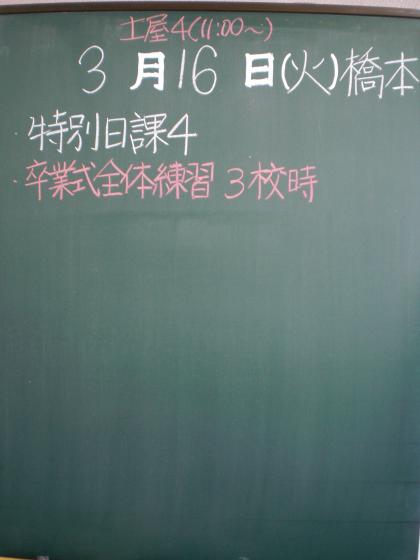 土屋4(11:00~)
3月16日(火)橋本
・特別日課4
・卒業式全体練習 3校時